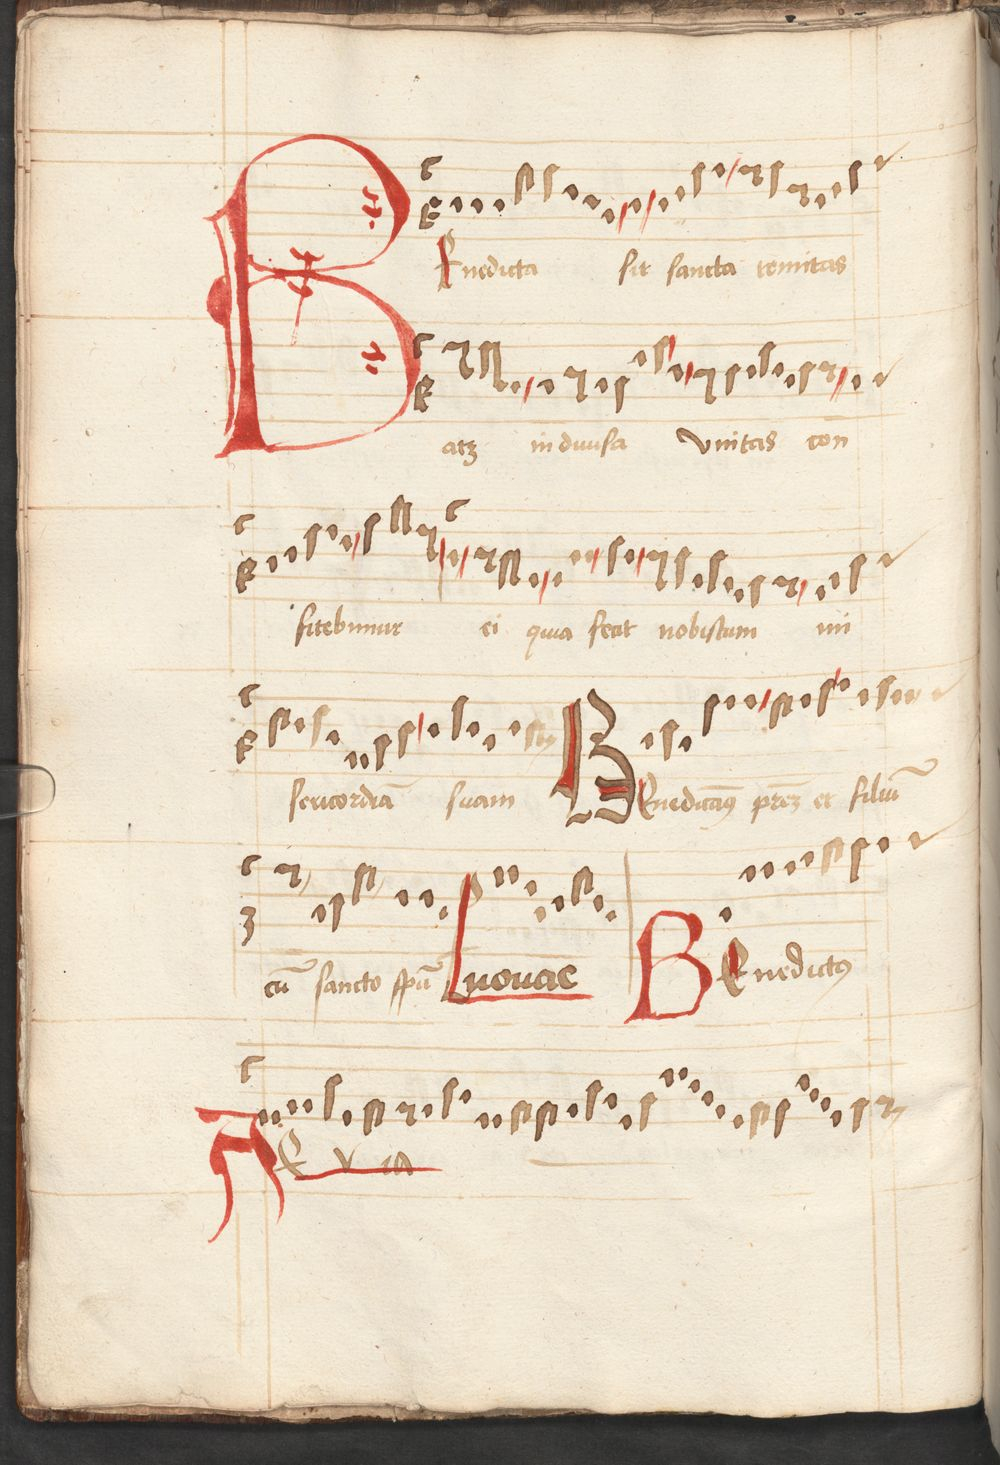 BEnedicta sit sancta trinitas
atꝫ indiuisa vnitas con
fitebimur ei quia fecit nobiscum mi
sericordiā suam BEnedicamꝰ prēꝫ et filiū
cū sancto spū Euouae BEnedictꝰ
AEVIA